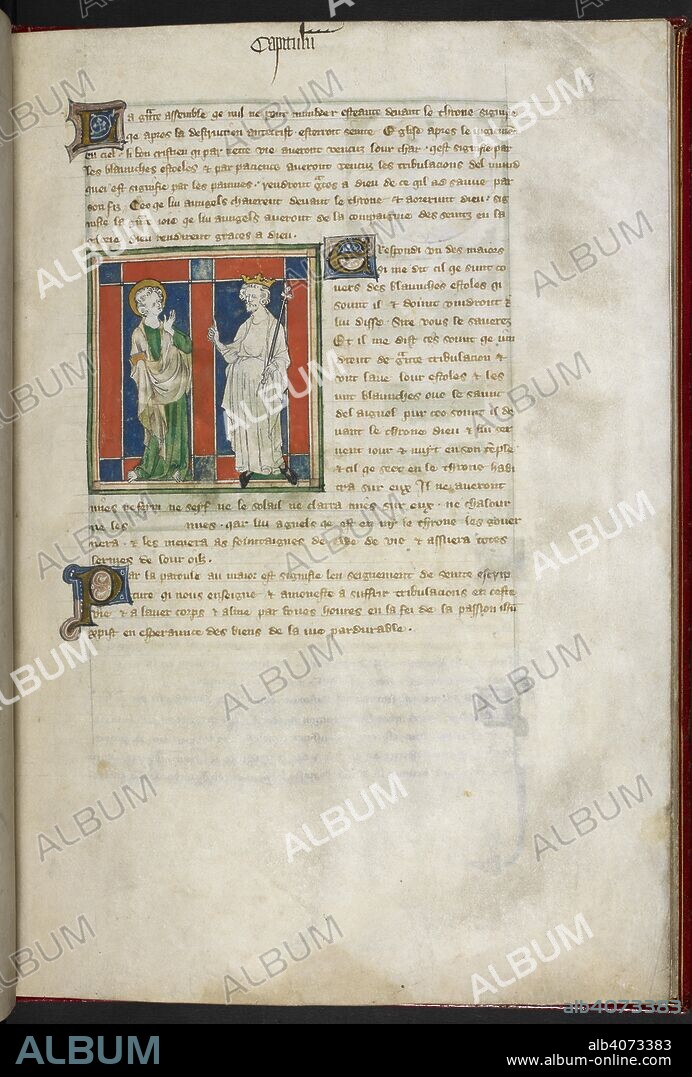 Capitulu
a gñte assemble qe nul ne pout numbrer esteante devant le throne signifie
qe apres la destruccion antecrist esterroit seinte Eglise apres le
en ciel. li bon cristien qi par cette vie averont vencuz lour char. qest signifie par
les blaunches estoles & par pacience averont vencuz les tribulacions del mund
quei est signifie par les paumes. rendront gr̃ces a dieu de ce qil ad sauve par
son fiz. Ceo qe lui aungels chaierent devant le throne & aorerunt dieu. sig
nifie la gñt ioie qe lui aungels averont de la compaignie des seintz en la
glorie dieu rendirent graces a dieu.
E respondi un des maiors
qi me dit cil qe sunt co
vers des blaunches estoles qi
sount il & dount vindront &
lui disse. Sire vous le saverez
Et il me dist ces sount qe
dient de gñte tribulacion &
ont lave lour estoles & les
unt blaunches ove le saunc
del aignel pur ceo sount il de
vant le throne dieu & lui ser
vent iour & nuyt en son te͂ple
& cil qe seet en le throne habi
tra sur eux Il ne averont
mes ne feym ne seyf ne le solail ne clarra mes sur eux. ne chalour
ne les mes. qar lui agnels qe est en my le throne les gover
nera. & les menera as fountaignes de ewe de vie & assuera totes
lermes de lour oilz.
Par la parole au maior est signifie len seignement de seinte escrip
ture qi nous enseigne & amoneste a suffrir tribulacions en ceste
vie & a laver corps & alme par bones houres en la fei de la passion ihũ
crist en esperaunce des biens de la vie pardurable.
ALBUM
alb4073383
ALBUM
alb4073383
www.album-online.com